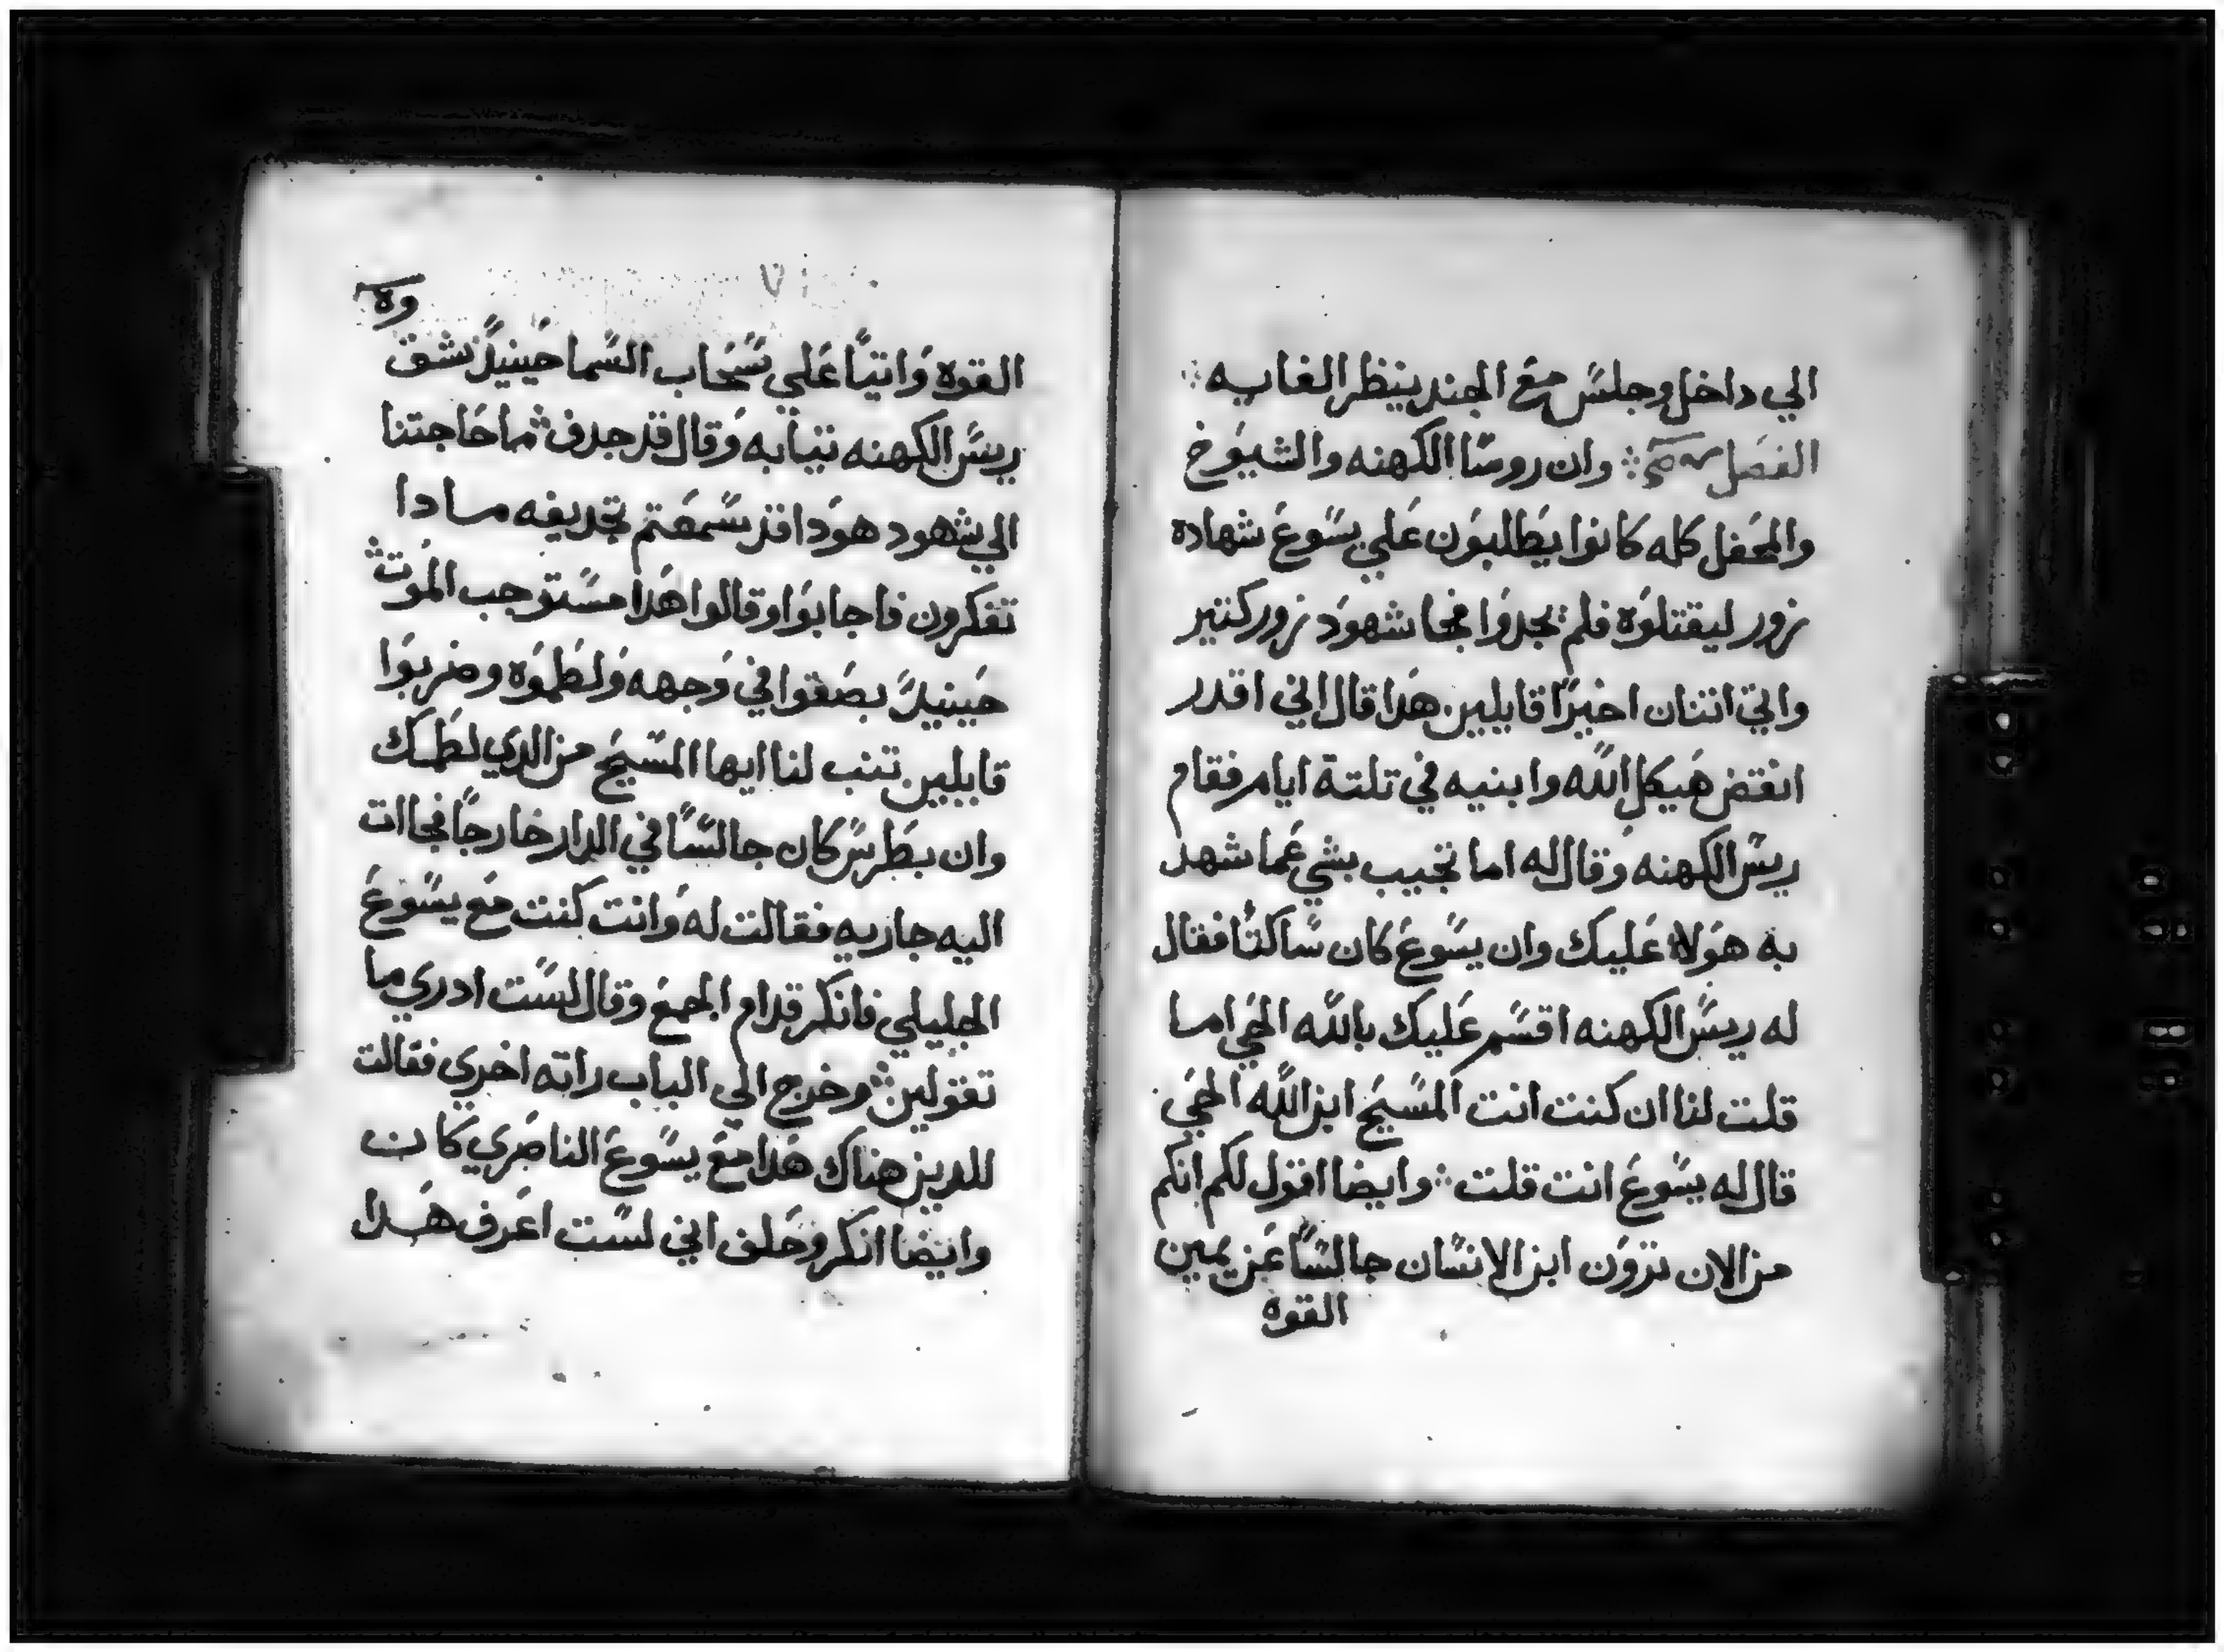 الي داخل وجلس مع الجند ينظر الغايه
الفصل وان روسا الكهنه والشيوخ
والمحفل كله كانوا يطلبون علي يسوع شهاده
زور ليقتلوه فلم يجدوا فجا شهود زور كتير
واتي اتنان اخيرًا قايلين هدا قال اني اقدر
انقض هيكل الله وابنيه في تلتة ايام فقام
ريس الكهنه وقال له اما تجيب بشي عما شهد
به هولاء عليك وان يسوع كان ساكتًا فقال
له ريس الكهنه اقسم عليك بالله الحي اما
قلت لنا ان كنت انت المسيح ابن الله الحي
قال له يسوع انت قلت وايضا اقول لكم انكم
من الان ترون ابن الانسان جالسًا عن يمين
القوه
القوه واتيًا علي سحاب السما حينيدٍ شق
ريس الكهنه تيابه وقال قد جدف ما حاجتنا
الي شهود هودا قد سمعتم تجديفه مادا
تفكرون فاجابوا وقالوا هدا مستوجب الموت
حينيدٍ بصقوا في وجهه ولطموه وضربوا
قايلين تنب لنا ايها المسيح من الدي لطمك
وان بطرس كان جالسًا في الدار خارجًا فجاات
اليه جاريه فقالت له وانت كنت مع يسوع
الجليلي فانكر قدام الجمع وقال لست ادري ما
تقولين وخرج الي الباب راته اخري فقالت
للدين هناك هدا مع يسوع الناصري كان
وايضا انكر وحلف اني لست اعرف هدا